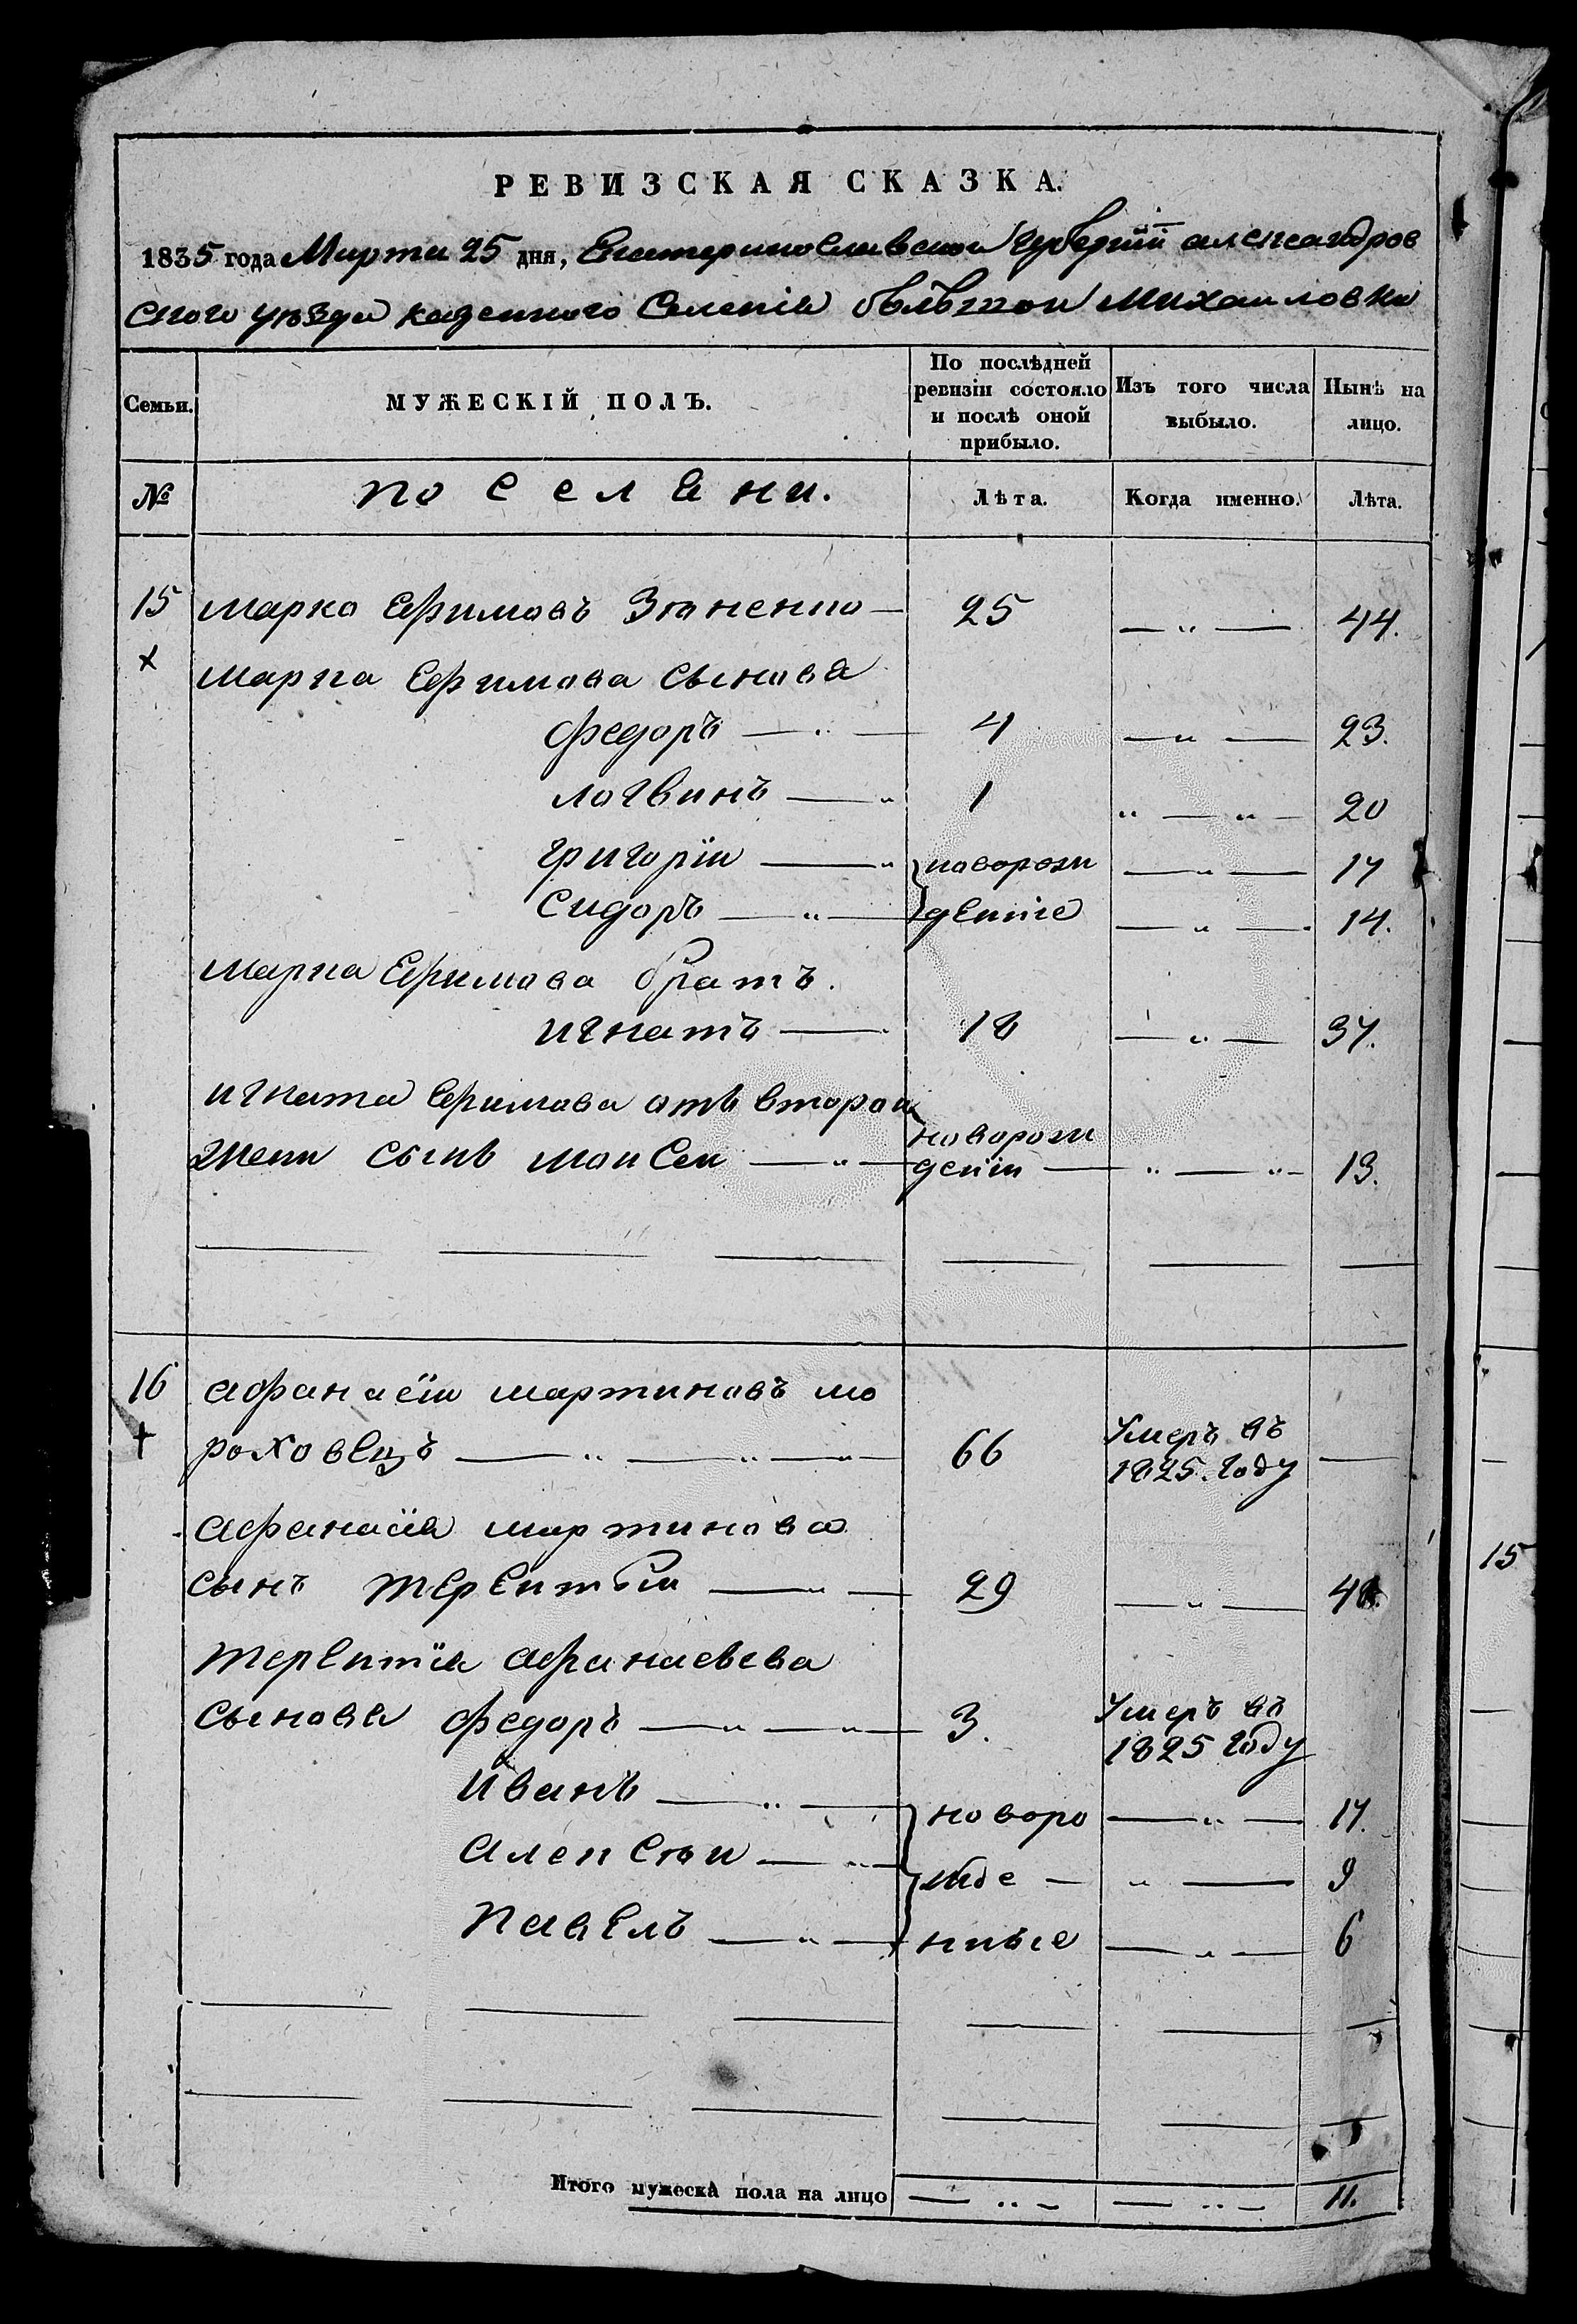 РЕВИЗСКАЯ СКАЗКА.
1835 года Марта 25 дня, Екатеринославской Губерніи александров
ского уѣзда казенного Селенія бѣлѣной Михаиловки
Семьи. МУЖЕСКІЙ ПОЛЪ. По послѣдней ревизіи состояло и послѣ оной прибыло. Изъ того числа выбыло. Нынѣ на лицо.
№ поселяни. Лѣта. Когда именно. Лѣта.
15 марко Ефимовъ Зюненко — 25 — " — 44.
х марка Ефимова сынова
федоръ — " — 4 — " — 23.
логвинъ — " 1 " — " — 20
григорiй — " новорож — " — 17
Сидоръ — " — деніе — " — 14.
марка Ефимова братъ.
игнатъ — 18 — " — 37.
игната Ефимова отъ второй
жени сынъ моисей — " — новорож
деніи — " — " — 13.
16 афанасій мартиновъ мо
† роховецъ — " — " — " — 66 Умеръ въ 1825. году —
афанасія мартинова
сынъ терентій — " — 29 — " — 48.
терентія афанасьева
сынова федоръ — " — " — 3. Умеръ въ 1825 году
иванъ — " — новоро — " — 17.
алексѣй — " — жде — " — 9
павелъ — " — нные — " — 6
Итого мужеска пола на лицо — " — — " — 11.
15